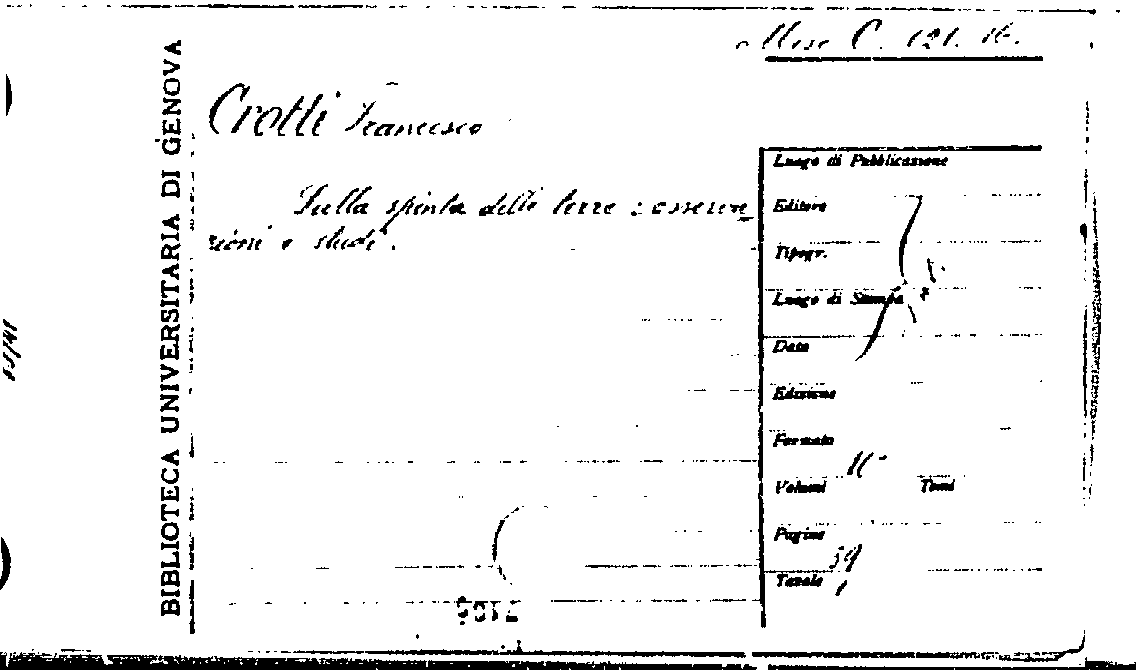 Misc C. 121. 16.
BIBLIOTECA UNIVERSITARIA DI GENOVA
Crotti Francesco
Sulla spinta delle terre: osserva
zioni e studi.
Luogo di Pubblicazione
Editore
Tipogr.
Luogo di Stampa
Data
Edizione
Formato
Volumi Tomi
Pagine 59
Tavole 1